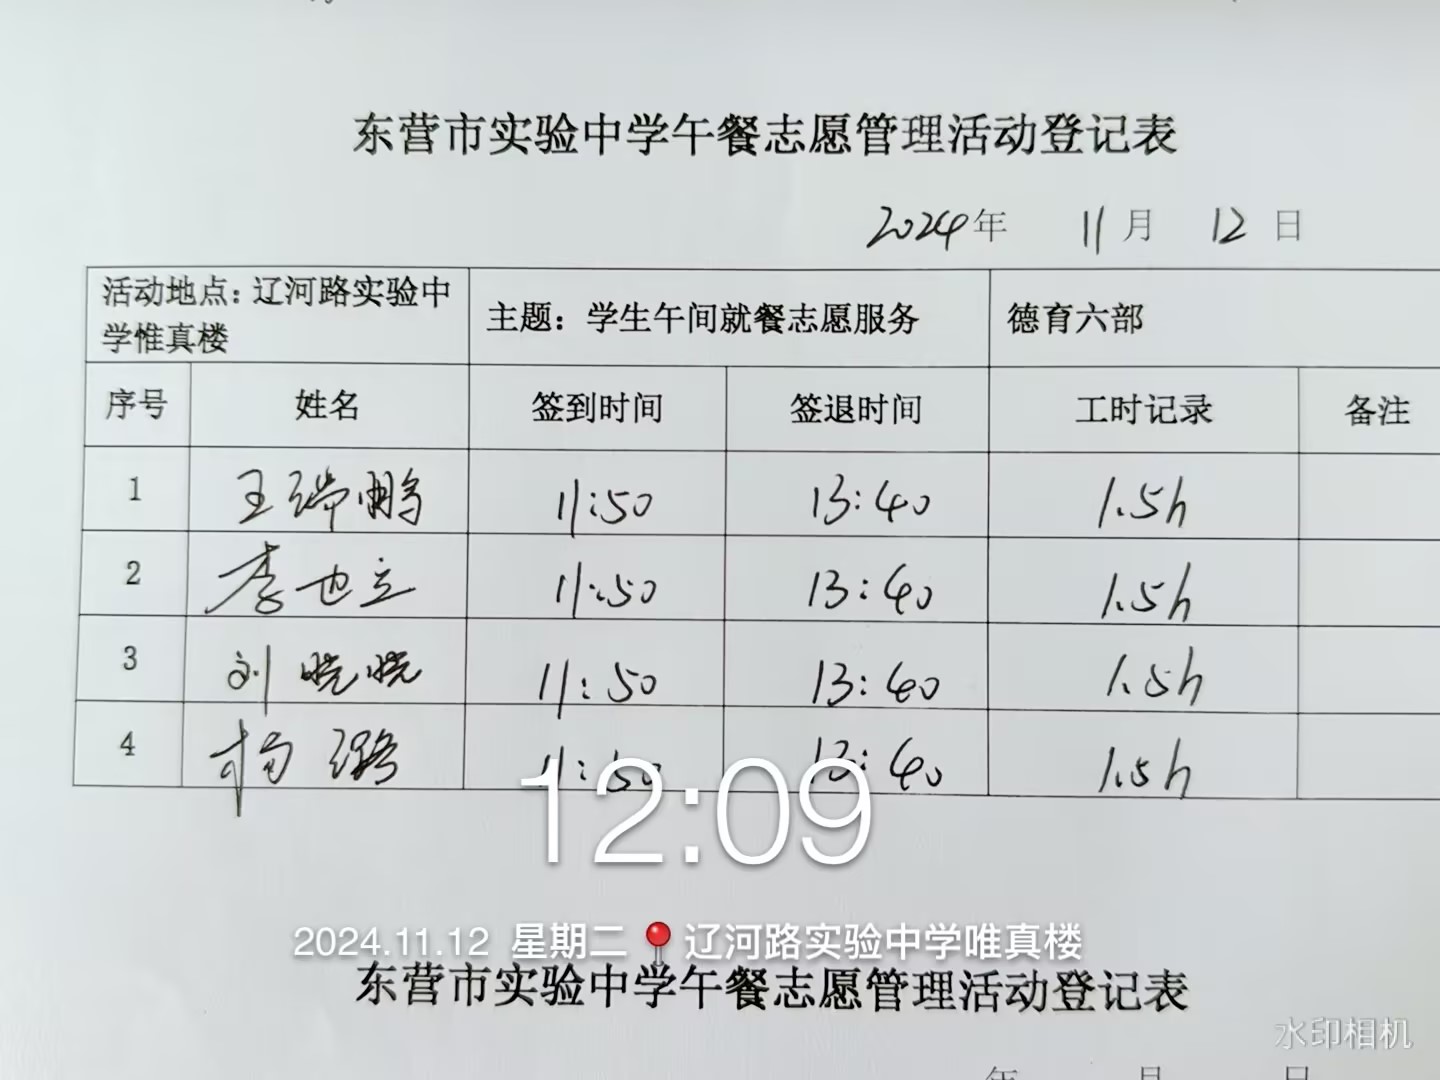 东营市实验中学午餐志愿管理活动登记表
2024年 11月 12日
活动地点：辽河路实验中
学惟真楼
主题：学生午间就餐志愿服务
德育六部
序号 姓名 签到时间 签退时间 工时记录 备注
1 王瑞鹏 11:50 13:40 1.5h
2 李也立 11:50 13:40 1.5h
3 刘晓晓 11:50 13:40 1.5h
4 杨璐 11:50 13:40 1.5h
12:09
2024.11.12 星期二 辽河路实验中学唯真楼
东营市实验中学午餐志愿管理活动登记表
水印相机
年 月 日